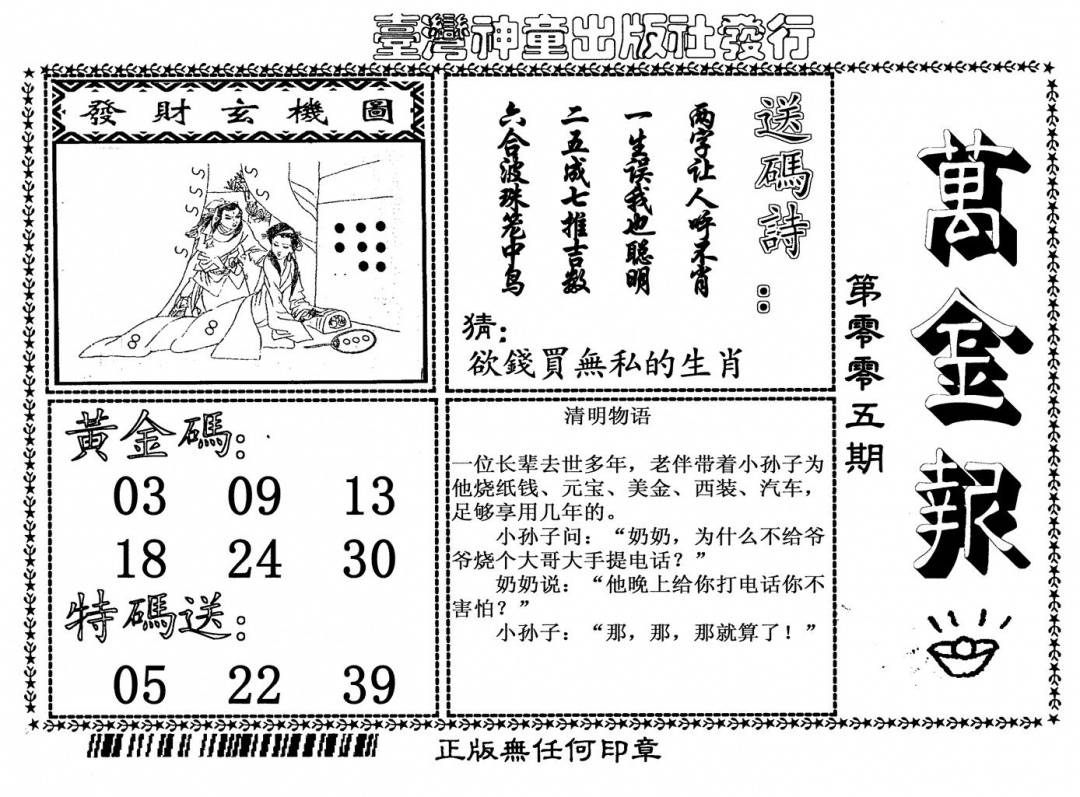 臺灣神童出版社發行
發財玄機圖
送碼詩：
两字让人呼不肖
一生误我也聪明
二五成七推吉数
六合波珠笼中鸟
猜：
欲錢買無私的生肖
萬金報
第零零五期
黃金碼：
03 09 13
18 24 30
特碼送：
05 22 39
清明物语
一位长辈去世多年，老伴带着小孙子为
他烧纸钱、元宝、美金、西装、汽车，
足够享用几年的。
小孙子问：“奶奶，为什么不给爷
爷烧个大哥大手提电话？”
奶奶说：“他晚上给你打电话你不
害怕？”
小孙子：“那，那，那就算了！”
正版無任何印章